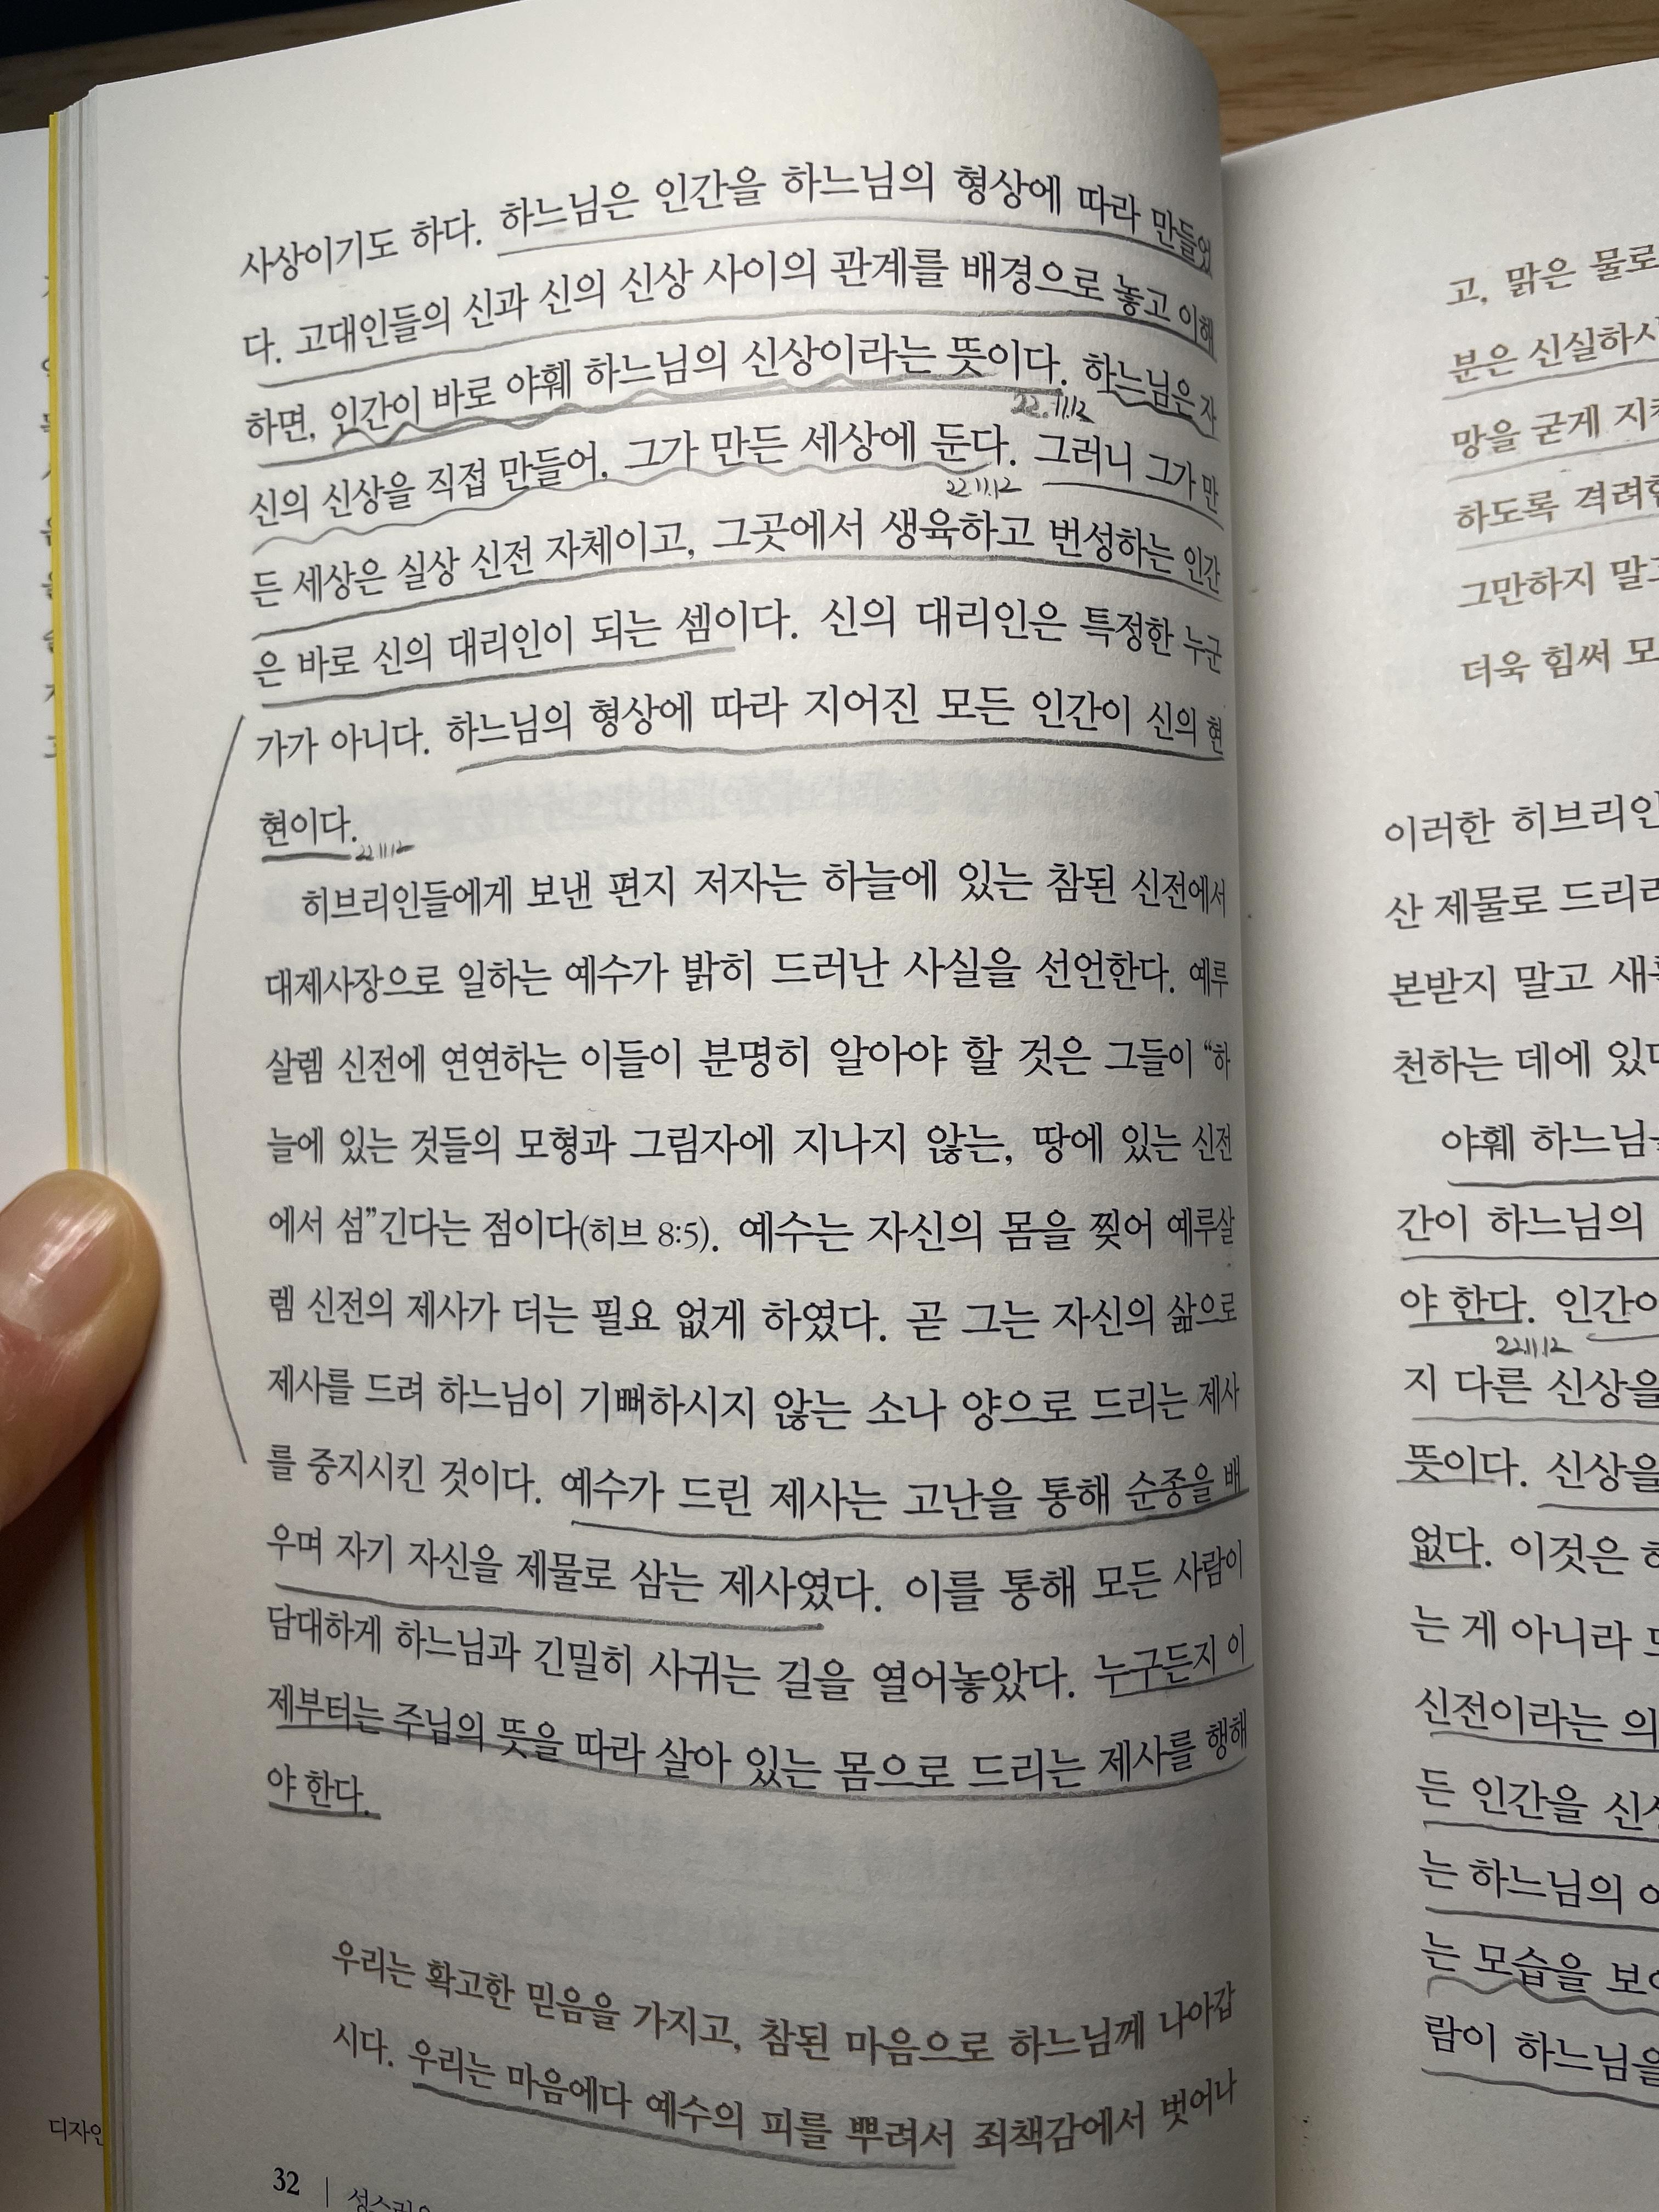 사상이기도 하다. 하느님은 인간을 하느님의 형상에 따라 만들었
다. 고대인들의 신과 신의 신상 사이의 관계를 배경으로 놓고 이해
하면, 인간이 바로 야훼 하느님의 신상이라는 뜻이다. 하느님은 자
22.11.12
신의 신상을 직접 만들어, 그가 만든 세상에 둔다. 그러니 그가 만
22.11.12
든 세상은 실상 신전 자체이고, 그곳에서 생육하고 번성하는 인간
은 바로 신의 대리인이 되는 셈이다. 신의 대리인은 특정한 누군
가가 아니다. 하느님의 형상에 따라 지어진 모든 인간이 신의 현
현이다.
22.11.12
히브리인들에게 보낸 편지 저자는 하늘에 있는 참된 신전에서
대제사장으로 일하는 예수가 밝히 드러난 사실을 선언한다. 예루
살렘 신전에 연연하는 이들이 분명히 알아야 할 것은 그들이 “하
늘에 있는 것들의 모형과 그림자에 지나지 않는, 땅에 있는 신전
에서 섬”긴다는 점이다(히브 8:5). 예수는 자신의 몸을 찢어 예루살
렘 신전의 제사가 더는 필요 없게 하였다. 곧 그는 자신의 삶으로
제사를 드려 하느님이 기뻐하시지 않는 소나 양으로 드리는 제사
를 중지시킨 것이다. 예수가 드린 제사는 고난을 통해 순종을 배
우며 자기 자신을 제물로 삼는 제사였다. 이를 통해 모든 사람이
담대하게 하느님과 긴밀히 사귀는 길을 열어놓았다. 누구든지 이
제부터는 주님의 뜻을 따라 살아 있는 몸으로 드리는 제사를 행해
야 한다.
우리는 확고한 믿음을 가지고, 참된 마음으로 하느님께 나아갑
시다. 우리는 마음에다 예수의 피를 뿌려서 죄책감에서 벗어나
32
고, 맑은 물로
분은 신실하시
망을 굳게 지
하도록 격려
그만하지 말고
더욱 힘써 모
이러한 히브리인
산 제물로 드리
본받지 말고 새
천하는 데에 있
야훼 하느님
간이 하느님의
야 한다. 인간이
22.11.12
지 다른 신상을
뜻이다. 신상을
없다. 이것은
는 게 아니라
신전이라는 의
든 인간을 신
는 하느님의
는 모습을 보
람이 하느님을
디자인